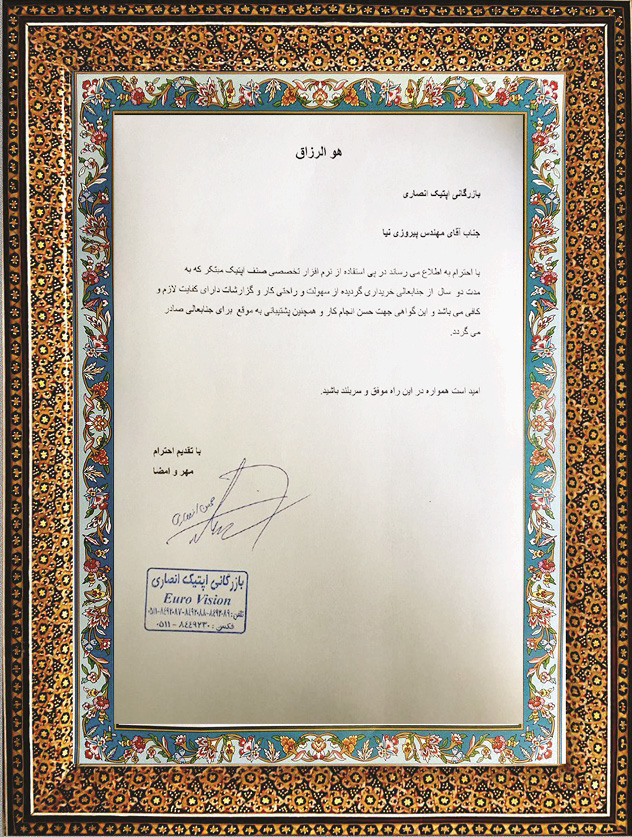 هو الرزاق
بازرگانی اپتیک انصاری
جناب آقای مهندس پیروزی نیا
با احترام به اطلاع می رساند در پی استفاده از نرم افزار تخصصی صنف اپتیک مبتکر که به
مدت دو سال از جنابعالی خریداری گردیده از سهولت و راحتی کار و گزارشات دارای کفایت لازم و
کافی می باشد و این گواهی جهت حسن انجام کار و همچنین پشتیبانی به موقع برای جنابعالی صادر
می گردد.
امید است همواره در این راه موفق و سربلند باشید.
با تقدیم احترام
مهر و امضا
بازرگانی اپتیک انصاری
Euro Vision
تلفن: ۸۴۹۲۰۸۹-۸۴۹۲۰۸۸-۸۴۹۲۰۸۷-۰۵۱۱
فکس: ۸۴۴۹۲۳۰ - ۰۵۱۱